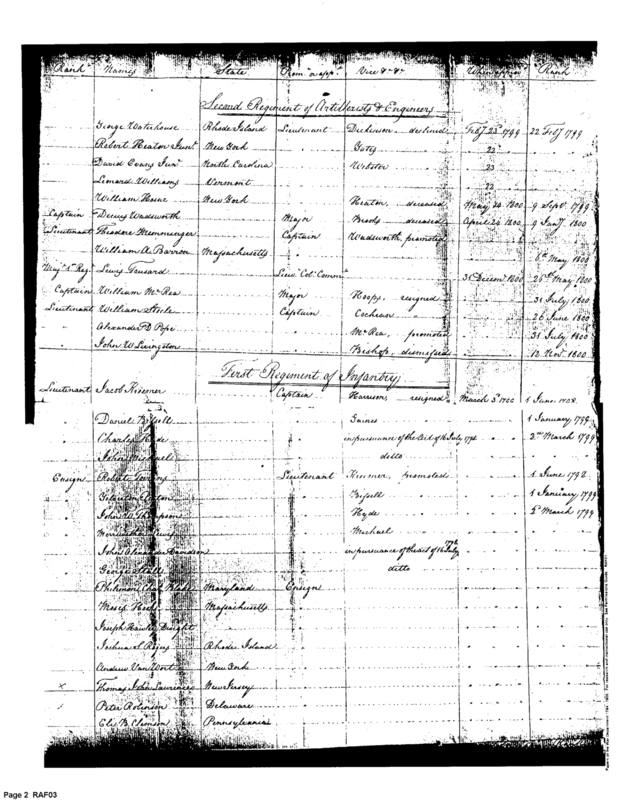 Rank Names State Prom. or app.t Vice &c &c Rank
Second Regiment of Artillerists & Engineers
George Waterhouse Rhode Island Lieutenant Dickinson declined Feby 23d 1799 22 Feby 1799
Robert Heaton Junr New York Gates 23
David Evans Junr North Carolina Webster 23
Lemard Williams Vermont 22
William Hosie New York Heaton, deceased May 24 1800 9 Sept. 1799
Captain Decius Wadsworth Major Brooks deceased April 24 1800 9 Jany 1800
Lieutenant Theodore Memminger Captain Wadsworth, promoted
William A. Barron Massachusetts 6th May 1800
Majr 1st Regt Lewis Tousard Lieut Col: Comm 31 Decemr 1800 26th May 1800
Captain William McRea Major Hoops, resigned 31 July 1800
Lieutenant William Steele Captain Cochran 26 June 1800
Alexander D Pope McRea, promoted 31 July 1800
John W Livingston Bishop, dismissed 12 Nov. 1800
First Regiment of Infantry
Lieutenant Jacob Kisemer Captain Harrison, resigned March 3d 1 June 1798.
Daniel Bissell Gaines 1 January 1799
Charles Hyde in pursuance of the Act of 16 July 179 3rd March 1799
John Michael ditto
Ensign Robert Lieutenant Kisemer, promoted 1 June 1798
Bissell 1 January 1799
John W. Thompson Hyde 3d March 1799
Meriwether Lewis Michael
John Alexander Davidson in pursuance of the act of 16 July
George ditto
Philemon Maryland Ensign
Moses Hook Massachusetts
Joseph Hawley Dwight
Joshua S. Rogers Rhode Island
Andrew Van Wort New York
x Thomas John Lawrence New Jersey
Peter Robinson Delaware
Eli B. Clemson Pennsylvania
Page 2 RAF03